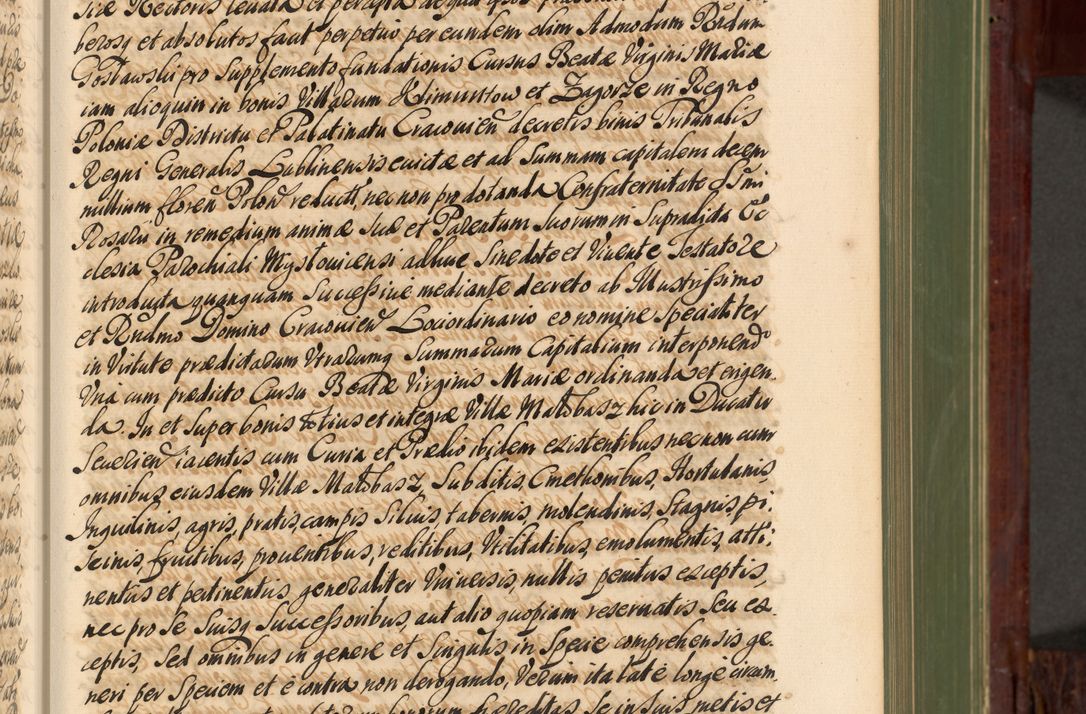 berosq et absolutos faut perpetuo per eundem olim Admodum Rndum
Gostawski pro Supplemento fundationis Cursus Beatæ Virginis Mariæ
iam alioquin in bonis Villarum Klimuntow et Zagorze in Regno
Poloniæ Districtu et Palatinatu Cracouien decretis binis Tribunalis
Regni Generalis Lublinensis euictæ et ad Summam capitalem decem
millium floren Polon reduct, nec non pro dotanda Confraternitate SSmi
Rosarii in remedium animæ suæ et Parentum suorum in Supradicta Ec
clesia Parochiali Myslouicensi adhuc Sine dote et Viuente Testatore
introducta quanquam Successiue mediante decreto ab Illustrissimo
et Rndmo Domino Cracouien Lociordinario eo nomine Specialiter
in Virtute prædictarum Utrarumq Summarum Capitalium interponend
Vna cum prædicto Cursu Beatæ Virginis Mariæ ordinanda et erigen-
da. In et Super bonis totius et integræ Villæ Matobasz hic in Ducatu
Seuerien iacentis cum Curia et Prædio ibidem existentibus nec non cum
omnibus eiusdem Villæ Matobasz, Subditis, Cmethonibus, Hortulanis,
Inquilinis, agris, pratis, campis Siluis, tabernis, molendinis, Stagnis, pi
scinis, fructibus, prouentibus, reditibus, Utilitatibus, emolumentis, atti:
nentiis et pertinentiis, generaliter Vniuersis, nullis penitus exceptis,
nec pro Se Suisq Successoribus, aut alio quopiam reseruatis Seu ex
ceptis, Sed omnibus in genere et Singulis in Specie comprehensis ge-
neri per Speciem et e contra non derogando, Verum ita late longe circum